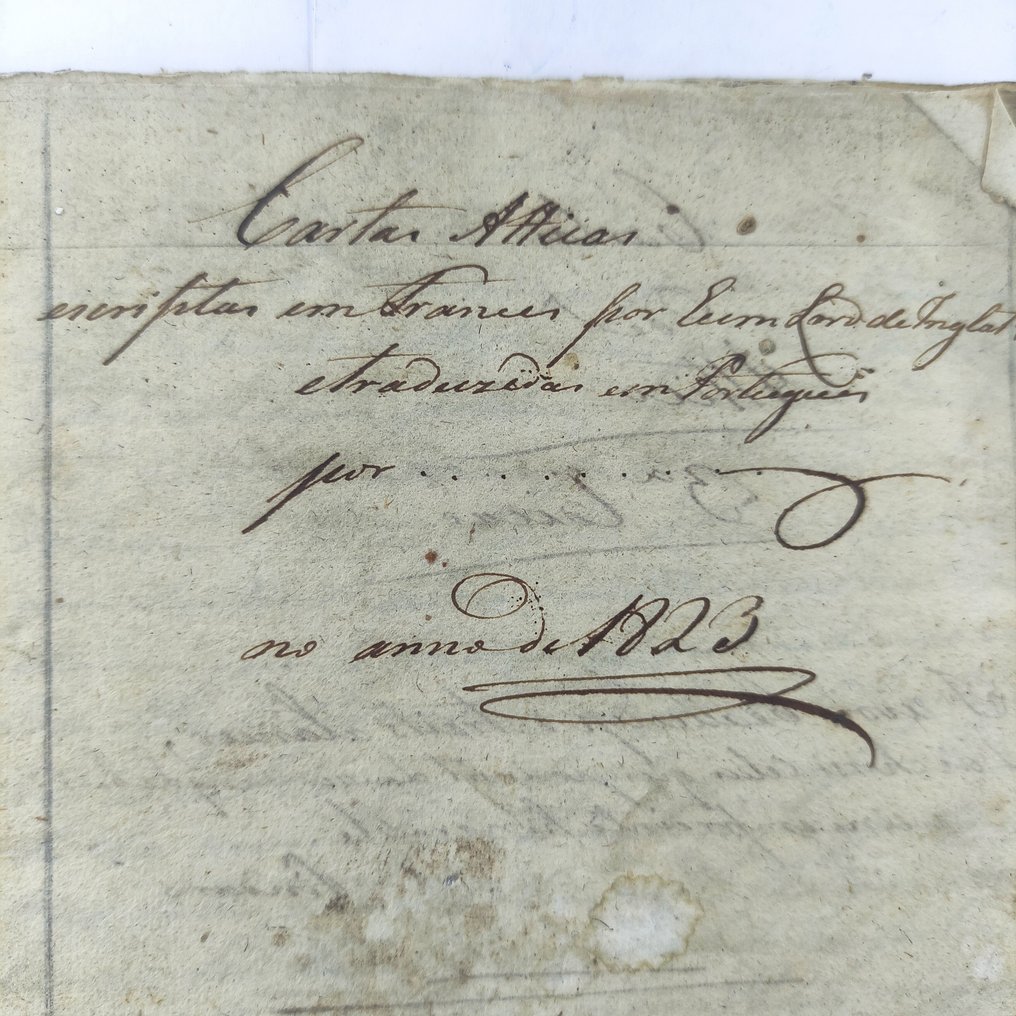 Cartas Atticas
escriptas em Frances por hum Lord de Inglat
e traduzidas em Portugues
por . . . . . . . . . .
no anno de 1823